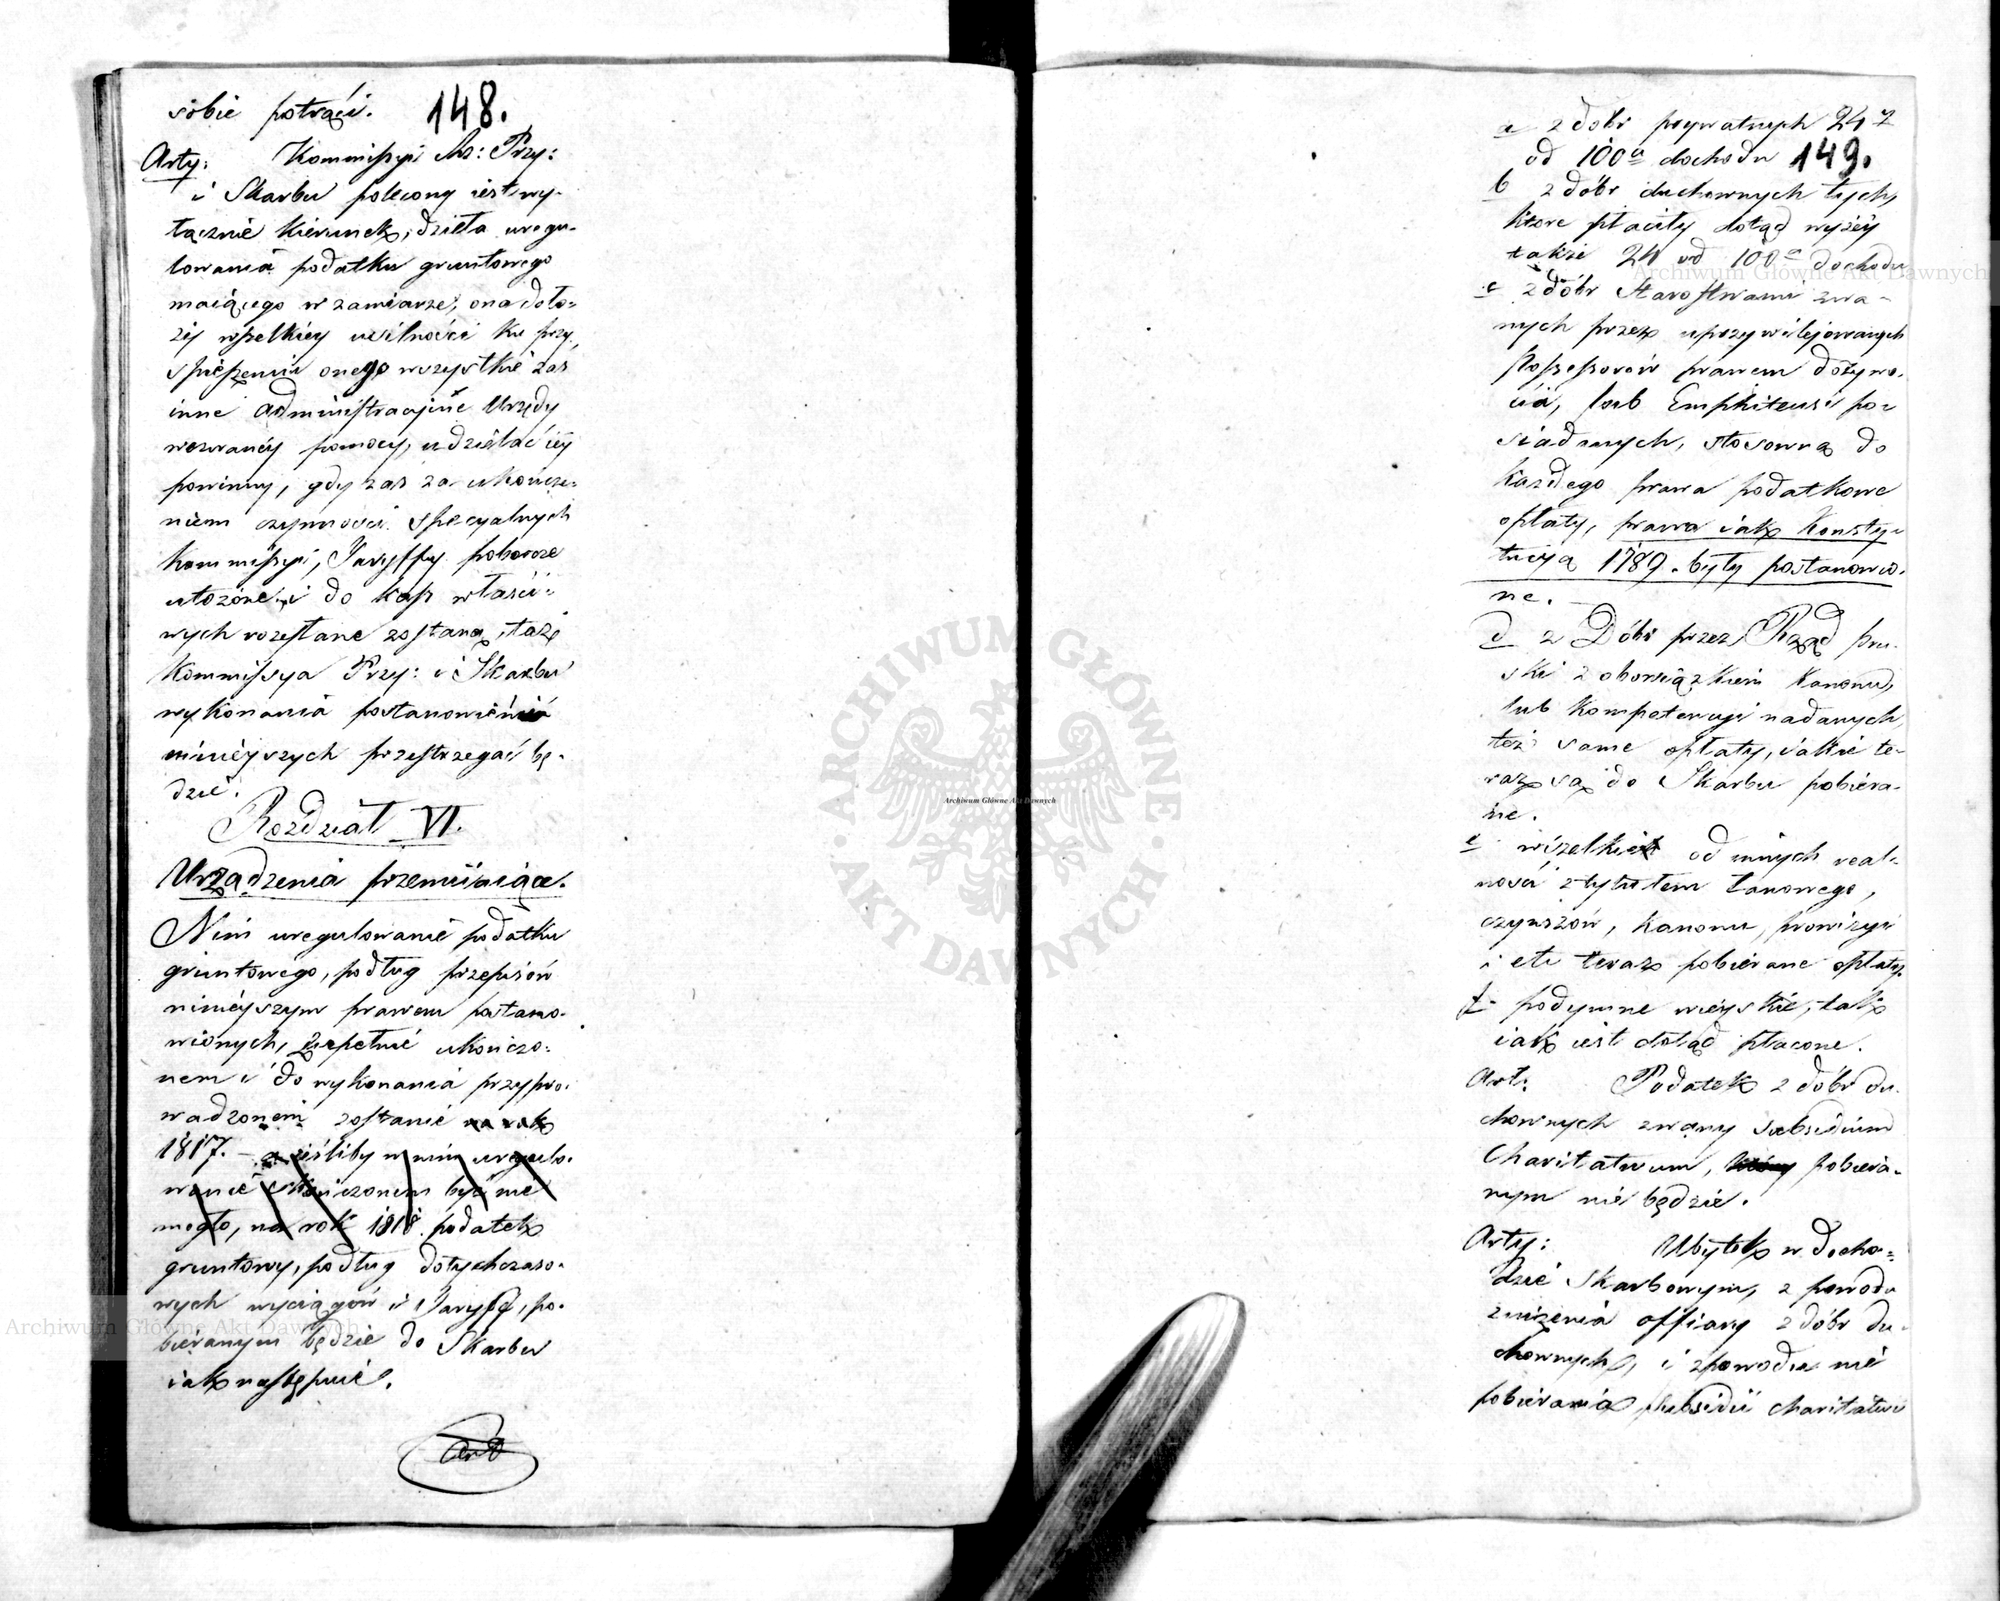 sobie potrąci. 148.
Arty: Kommissyi Rz: Przy:
i Skarbu polecony iest wy-
łącznie kierunek, dzieła uregu-
lowania podatku gruntowego
maiącego w zamiarze, ona doło-
ży wszelkiey usilności ku przy
spieszeniu onego wszystkie zaś
inne administracyine Urzędy
wezwaney pomocy, udzielać iey
powinny, gdy zaś za ukończe-
niem czynności specyalnych
Kommissyi, Taryffy poborcze
ułożone i do kass właści-
wych rozesłane zostaną, taż
Kommissya Przy: i Skarbu
wykonania postanowień
ninieyszych przestrzegać bę-
dzie.
Rozdział VI.
Urządzenia przemiiaiące.
Nim uregulowanie podatku
gruntowego, podług przepisów
ninieyszym prawem postano-
wionych, zupełnie ukończo-
nem i do wykonania przypro-
wadzonem zostanie na rok
1817. – a ieśliby w nim uregulo-
wanie ukończonem być nie
mogło, na rok 1818. podatek
gruntowy, podług dotychczaso-
wych wyciągów i Taryff, po-
bieranym będzie do Skarbu
iak następuie.
a z dóbr prywatnych 24
od 100 dochodu 149.
b z dóbr duchownych tych,
które płaciły dotąd wyżey
także 24 od 100 dochodu
c z dóbr Starostwami zwa-
nych przez uprzywilejowanych
Possessorów prawem dożywo-
cia, lub Emphiteusi po-
siadanych, stosowną do
każdego prawa podatkowe
opłaty, prawa iak Konsty-
tucyą 1789. były postanowio-
ne.
d z Dóbr przez Rząd pru-
ski z obowiązkiem Kanonu,
lub kompetencyi nadanych,
też same opłaty, iakie te-
raz są do Skarbu pobiera-
ne.
e wszelkie od innych real-
ności z tytułem Łanowego,
czynszów, kanonu, prowizyi
i etc teraz pobierane opłaty.
f podymne wieyskie, tak
iak iest dotąd płacone.
Art: Podatek z dóbr du-
chownych zwany subsidium
Charitativum, pobiera-
nym nie będzie.
Arty: Ubytek w docho-
dzie Skarbowym, z powodu
zniżenia offiary z dóbr du-
chownych, i z powodu nie
pobierania subsidii charitativi
Archiwum Główne Akt Dawnych
ARCHIWUM GŁÓWNE
AKT DAWNYCH
Archiwum Główne Akt Dawnych
Archiwum Główne Akt Dawnych